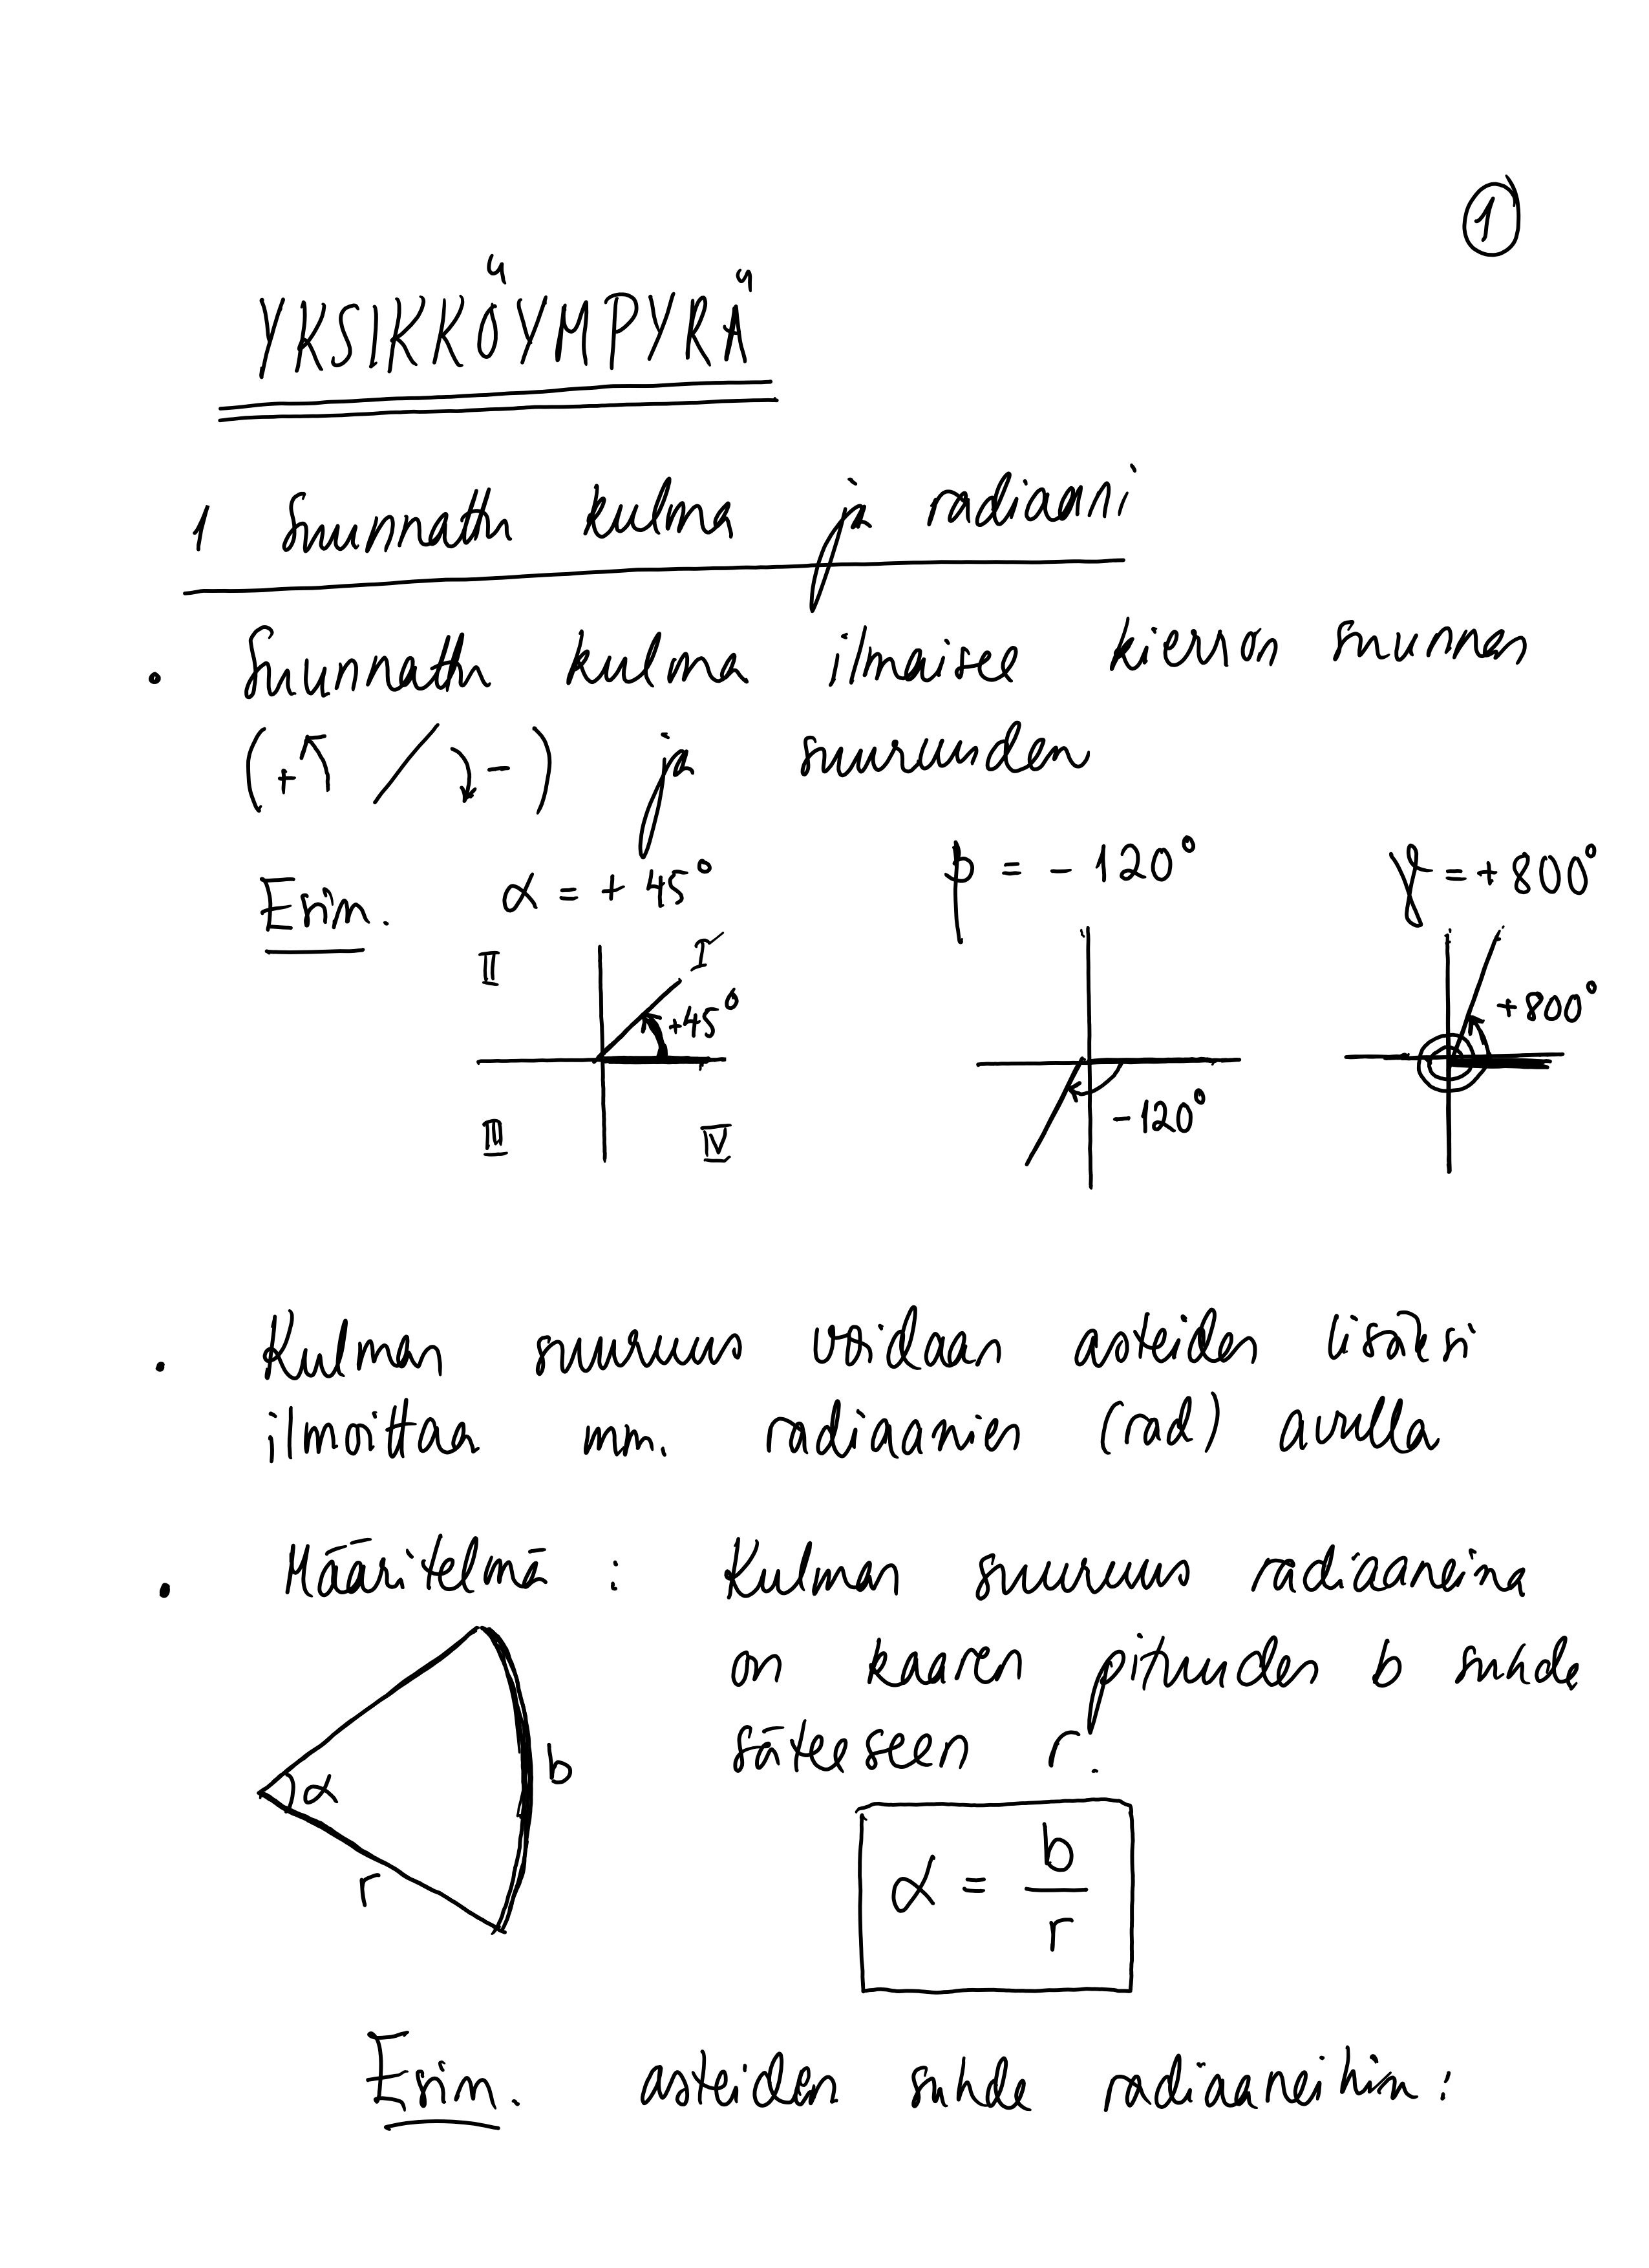 1
YKSIKKÖYMPYRÄ
1 Suunnattu kulma ja radiaani
• Suunnattu kulma ilmaisee kierron suunnan
(+ / -) ja suuruuden
Esim. α = + 45° β = - 120° γ = + 800°
II I
+45° +800°
-120°
III IV
• Kulman suuruus voidaan asteiden lisäksi
ilmoittaa mm. radiaanien (rad) avulla
• Määritelmä : Kulman suuruus radiaaneina
on kaaren pituuden b suhde
säteeseen r.
α b
r
α = b/r
Esim. asteiden suhde radiaaneihin :